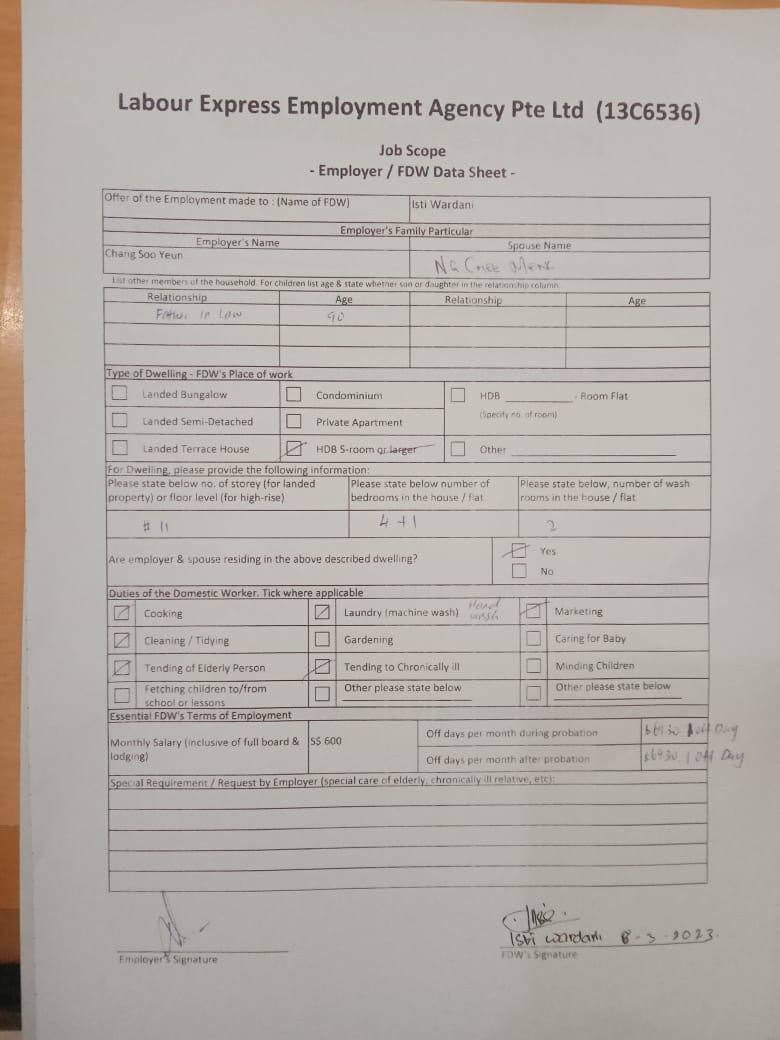 Labour Express Employment Agency Pte Ltd (13C6536)
Job Scope
- Employer / FDW Data Sheet -
Offer of the Employment made to : (Name of FDW) Isti Wardani
Employer's Family Particular
Employer's Name Spouse Name
Chang Soo Yeun Ng
List other members of the household. For children list age & state whether son or daughter in the relationship column.
Relationship Age Relationship Age
Father in Law 90
Type of Dwelling - FDW's Place of work
Landed Bungalow Condominium HDB - Room Flat
(Specify no. of room)
Landed Semi-Detached Private Apartment
Landed Terrace House HDB 5-room or larger Other
For Dwelling, please provide the following information:
Please state below no. of storey (for landed property) or floor level (for high-rise)
Please state below number of bedrooms in the house / flat
Please state below, number of wash rooms in the house / flat
# 11 4 +1 2
Are employer & spouse residing in the above described dwelling? Yes
No
Duties of the Domestic Worker. Tick where applicable
Cooking Laundry (machine wash) Hand wash Marketing
Cleaning / Tidying Gardening Caring for Baby
Tending of Elderly Person Tending to Chronically ill Minding Children
Fetching children to/from school or lessons Other please state below Other please state below
Essential FDW's Terms of Employment
Monthly Salary (inclusive of full board & lodging) S$ 600
Off days per month during probation 1 off Day
Off days per month after probation 1 off Day
Special Requirement / Request by Employer (special care of elderly, chronically ill relative, etc):
Isti wardani 8-3-2023.
Employer's Signature FDW's Signature